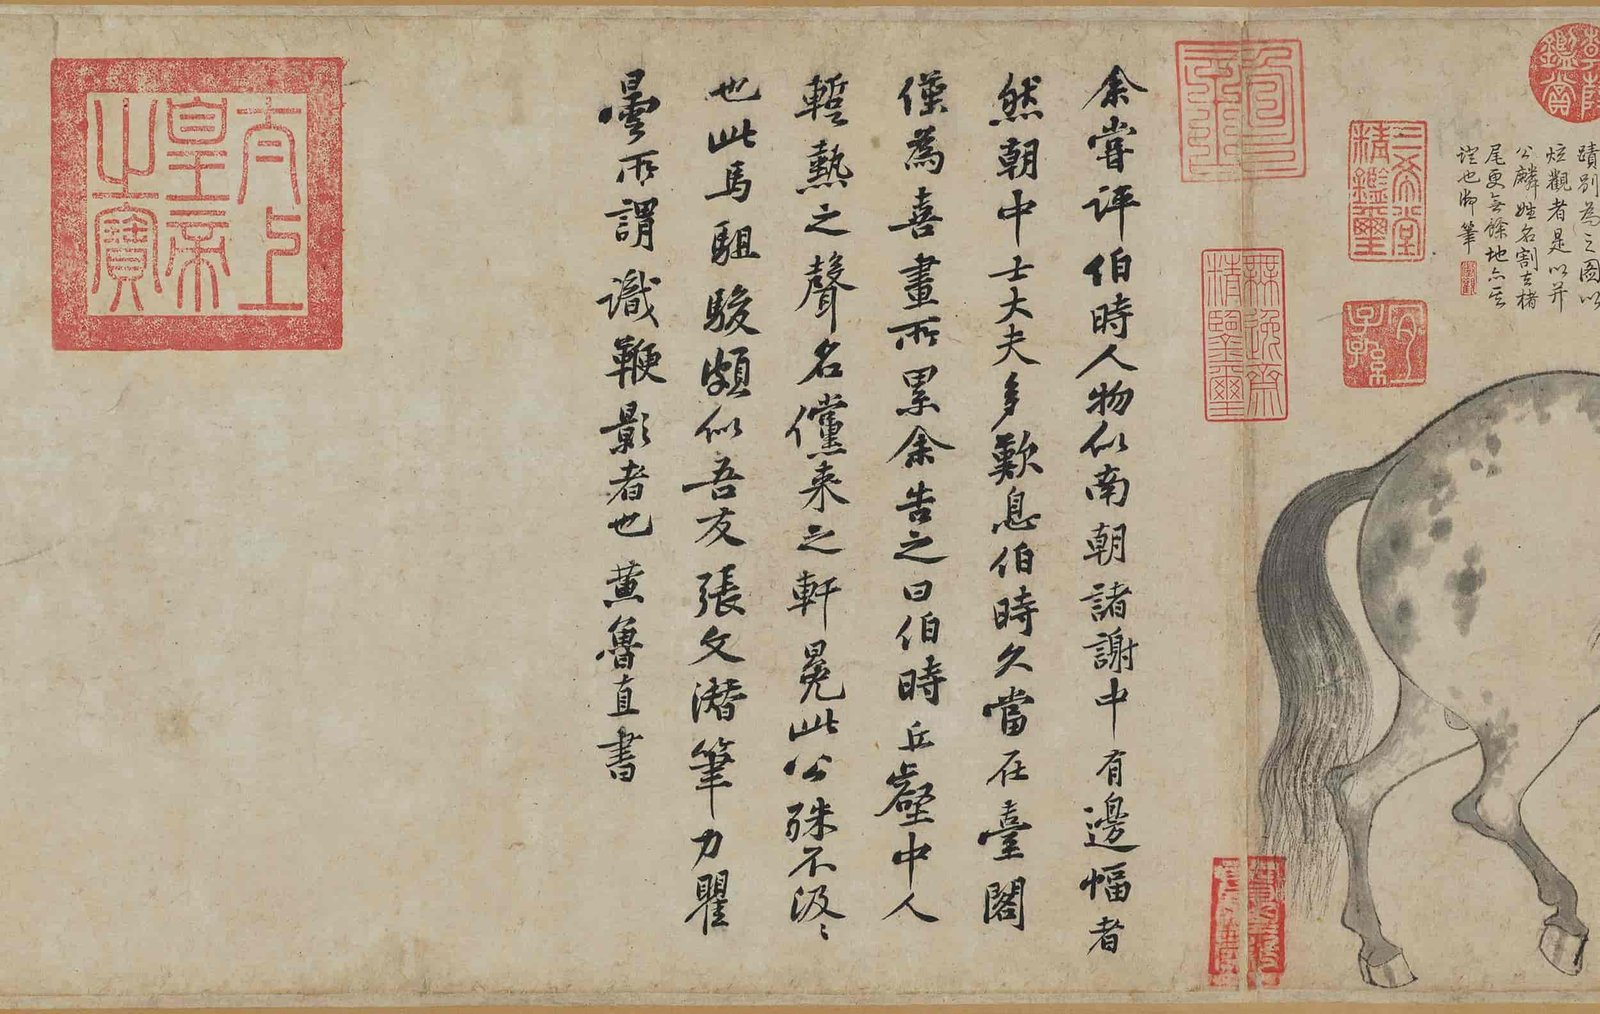 乾隆鑑賞
蹟别為之圖以
炫觀者是以并
公麟姓名割去楮
尾更無餘地亦其
證也御筆
三希堂精鑑璽
宜子孫
無逸齋精鑒璽
余嘗評伯時人物似南朝諸謝中有邊幅者
然朝中士大夫多歎息伯時久當在臺閣
僅為喜畫所累余告之曰伯時丘壑中人
暫熱之聲名儻来之軒冕此公殊不汲〻
也此馬駔駿頗似吾友張文潛筆力瞿
曇所謂識鞭影者也黄魯直書
太上皇帝之寶